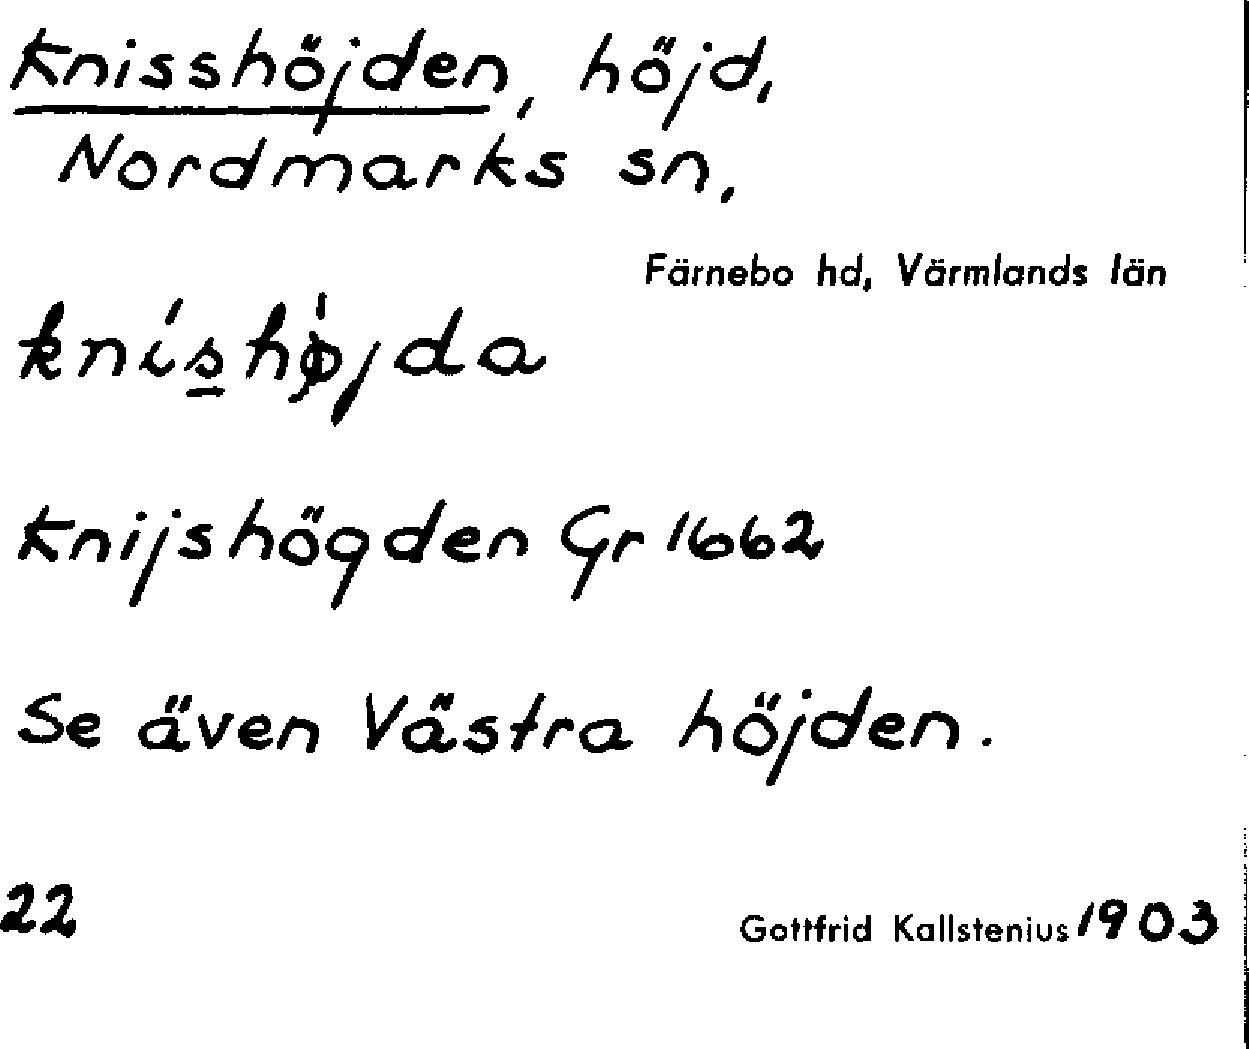 Knisshöjden, höjd,
Nordmarks sn,
Färnebo hd, Värmlands län
kníshø̀jda
Knijshögden Gr 1662
Se även Västra höjden.
22
Gottfrid Kallstenius 1903